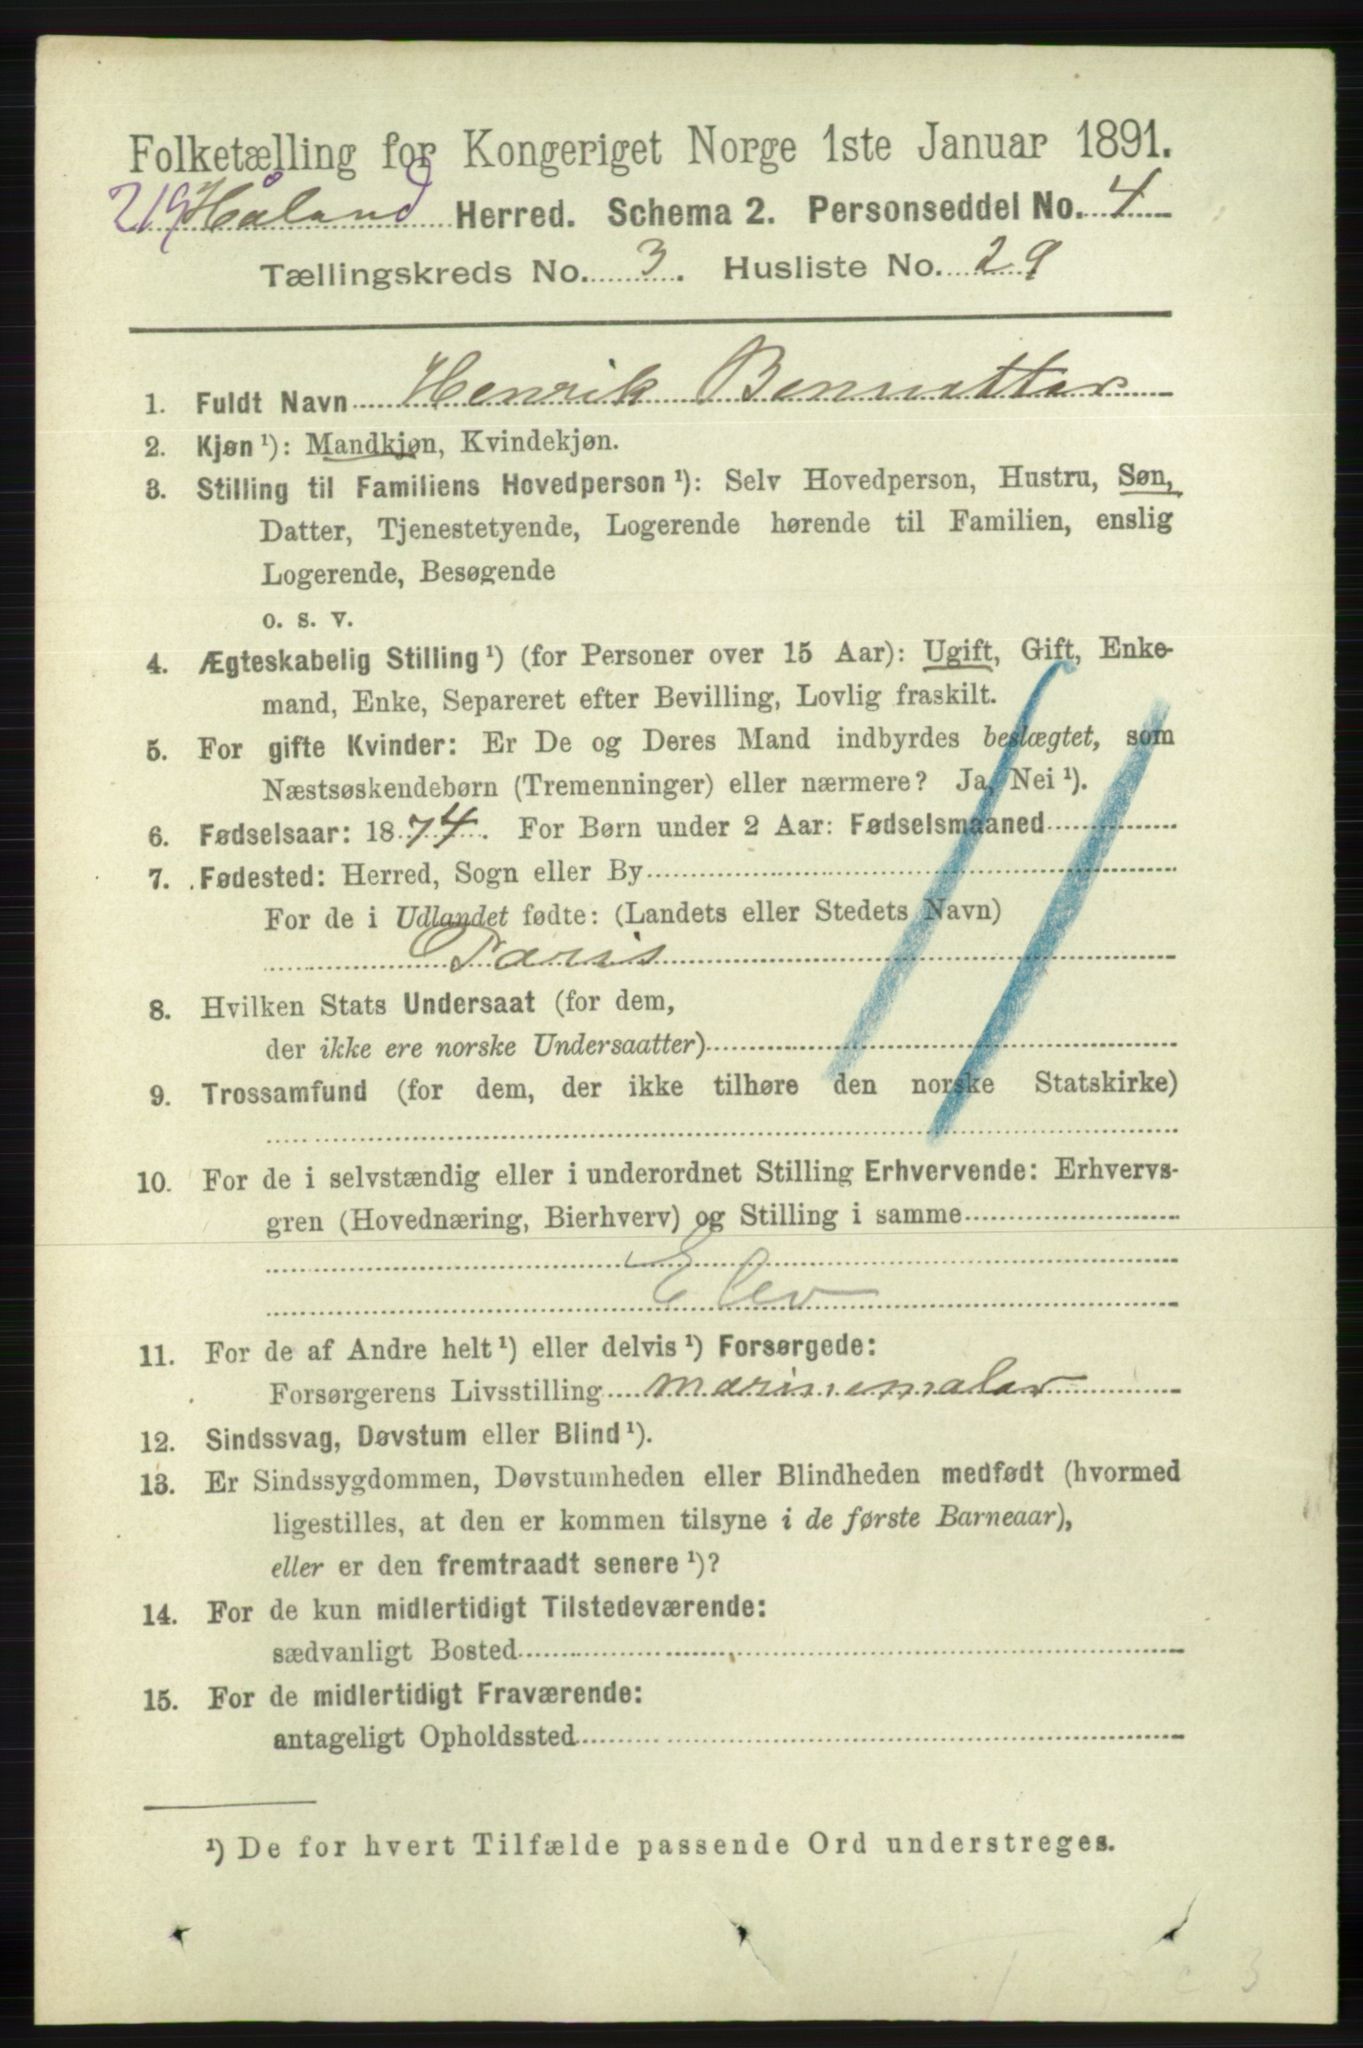 Folketælling for Kongeriget Norge 1ste Januar 1891.
Håland Herred. Schema 2. Personseddel No. 4
Tællingskreds No. 3. Husliste No. 29
1. Fuldt Navn Henrik Bennetter
2. Kjøn ¹): Mandkjøn, Kvindekjøn.
3. Stilling til Familiens Hovedperson ¹): Selv Hovedperson, Hustru, Søn,
Datter, Tjenestetyende, Logerende hørende til Familien, enslig
Logerende, Besøgende
o. s. v.
4. Ægteskabelig Stilling ¹) (for Personer over 15 Aar): Ugift, Gift, Enke-
mand, Enke, Separeret efter Bevilling, Lovlig fraskilt.
5. For gifte Kvinder: Er De og Deres Mand indbyrdes beslægtet, som
Næstsøskendebørn (Tremenninger) eller nærmere? Ja, Nei ¹).
6. Fødselsaar: 1874. For Børn under 2 Aar: Fødselsmaaned
7. Fødested: Herred, Sogn eller By
For de i Udlandet fødte: (Landets eller Stedets Navn)
Paris
8. Hvilken Stats Undersaat (for dem,
der ikke ere norske Undersaatter)
9. Trossamfund (for dem, der ikke tilhøre den norske Statskirke)
10. For de i selvstændig eller i underordnet Stilling Erhvervende: Erhvervs-
gren (Hovednæring, Bierhverv) og Stilling i samme
Elev
11. For de af Andre helt ¹) eller delvis ¹) Forsørgede:
Forsørgerens Livsstilling marinemaler
12. Sindssvag, Døvstum eller Blind ¹).
13. Er Sindssygdommen, Døvstumheden eller Blindheden medfødt (hvormed
ligestilles, at den er kommen tilsyne i de første Barneaar),
eller er den fremtraadt senere ¹)?
14. For de kun midlertidigt Tilstedeværende:
sædvanligt Bosted
15. For de midlertidigt Fraværende:
antageligt Opholdssted
¹) De for hvert Tilfælde passende Ord understreges.